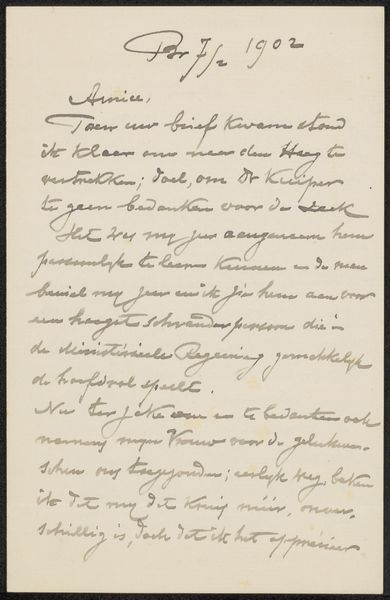 Br 7/2 1902
Amice,
Toen uw brief kwam stond
ik klaar om naar den Haag te
vertrekken; doel, om Dr Kuijper
te gaan bedanken voor de
Het was my zeer aangenaam hem
persoonlyk te leeren kennen en de man
beviel my zeer en ik zie hem aan voor
een hoogst schrander persoon die in
de Ministerieele Regeering gemakkelyk
de hoofdrol speelt.
Nu ter zake om u te bedanken ook
namens myn Vrouw voor de gelukwen-
schen ons toegezonden; eerlyk weg beken
ik dat my dat Kruis onver-
schillig is, doch dat ik het apprecieer